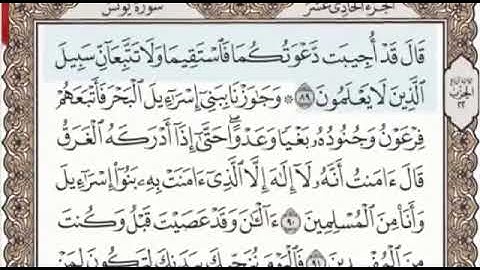 الجزء الحادي عشر
سورة يونس
قَالَ قَدْ أُجِيبَت دَّعْوَتُكُمَا فَٱسْتَقِيمَا وَلَا تَتَّبِعَآنِّ سَبِيلَ
ٱلَّذِينَ لَا يَعْلَمُونَ ٨٩ ۞ وَجَٰوَزْنَا بِبَنِىٓ إِسْرَٰٓءِيلَ ٱلْبَحْرَ فَأَتْبَعَهُمْ
فِرْعَوْنُ وَجُنُودُهُۥ بَغْيًا وَعَدْوًا ۖ حَتَّىٰٓ إِذَآ أَدْرَكَهُ ٱلْغَرَقُ
قَالَ ءَامَنتُ أَنَّهُۥ لَآ إِلَٰهَ إِلَّا ٱلَّذِىٓ ءَامَنَتْ بِهِۦ بَنُوٓا۟ إِسْرَٰٓءِيلَ
وَأَنَا۠ مِنَ ٱلْمُسْلِمِينَ ٩٠ ءَآلْـَٰٔنَ وَقَدْ عَصَيْتَ قَبْلُ وَكُنتَ
مِنَ ٱلْمُفْسِدِينَ ٩١ فَٱلْيَوْمَ نُنَجِّيكَ بِبَدَنِكَ لِتَكُونَ لِمَنْ